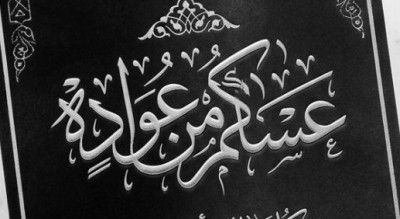 عَسَاكُمْ مِنْ عُوَّادِهْ